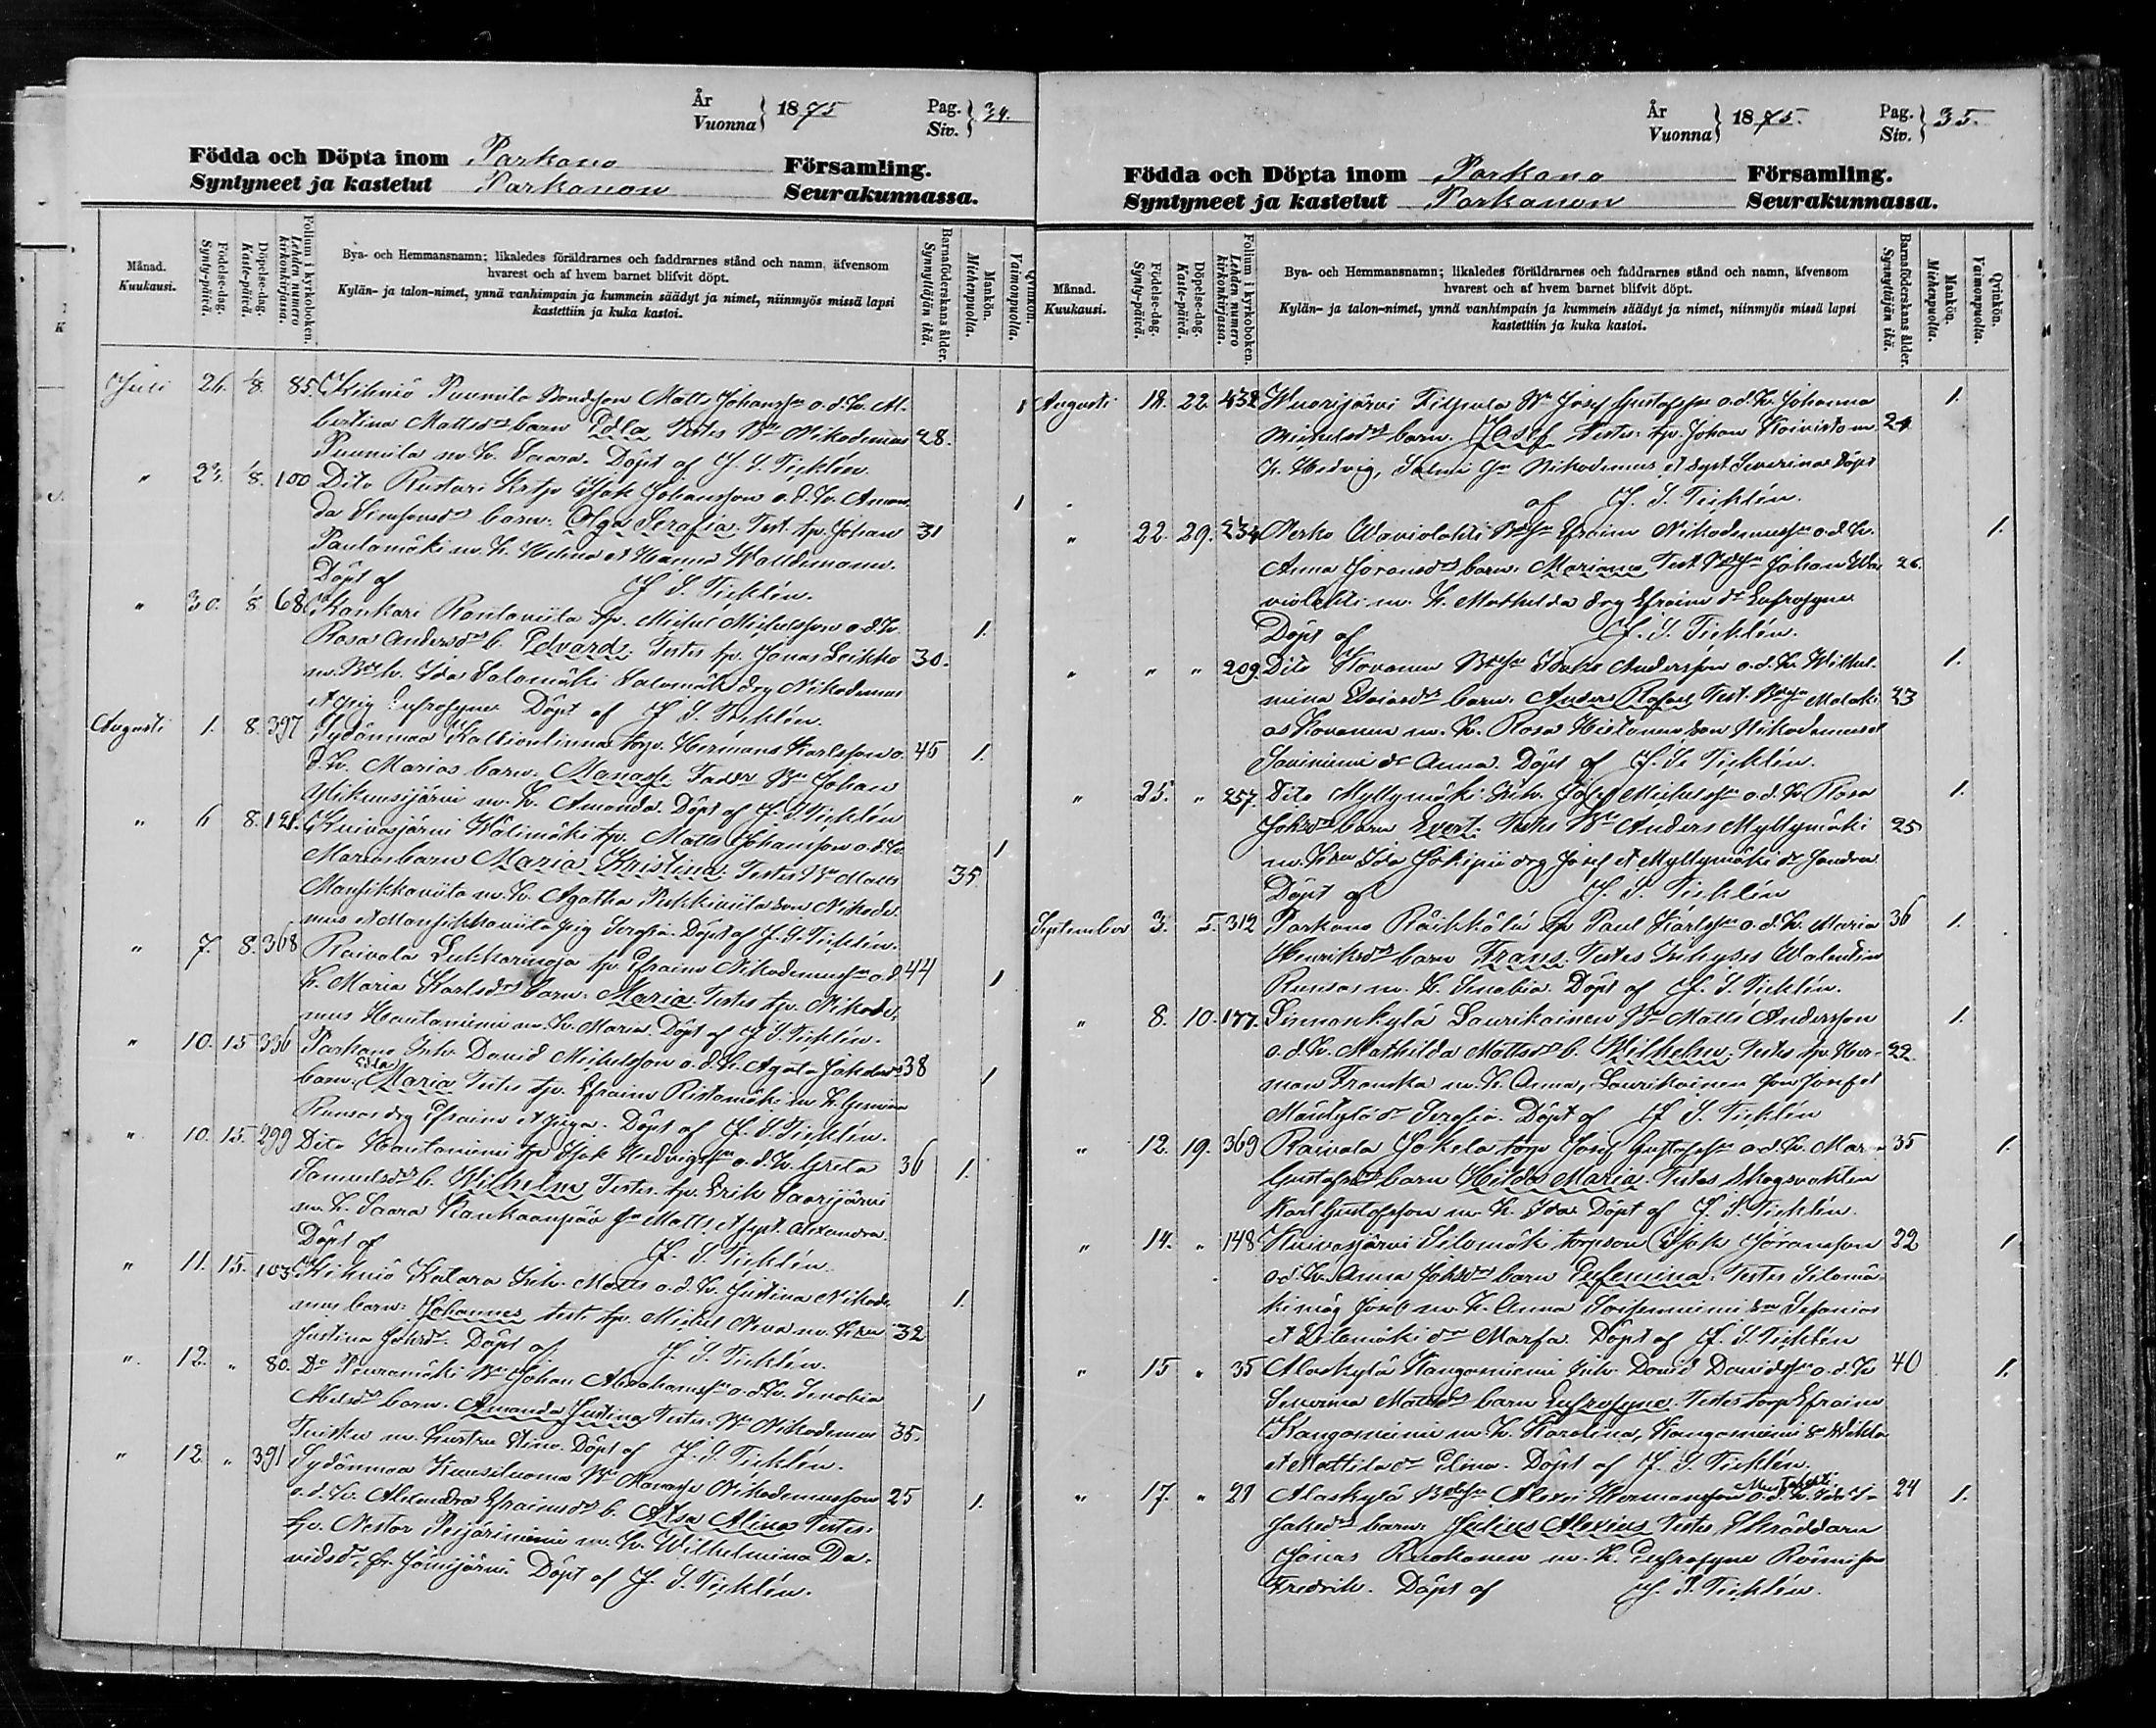 År
Vuonna } 1875 Pag. Siv. } 34.
Födda och Döpta inom Parkano Församling.
Syntyneet ja kastetut Parkanon Seurakunnassa.
Månad. Kuukausi.
Födelse-dag. Synty-päivä.
Döpelse-dag. Kaste-päivä.
Folium i kyrkoboken. Lehden numero kirkonkirjassa.
Bya- och Hemmansnamn; likaledes föräldrarnes och faddrarnes stånd och namn, äfvensom
hvarest och af hvem barnet blifvit döpt.
Kylän- ja talon-nimet, ynnä vanhimpain ja kummein säädyt ja nimet, niinmyös missä lapsi
kastettiin ja kuka kastoi.
Barnaföderskans ålder. Synnyttäjän ikä.
Mankön. Miehenpuolta.
Qvinkön. Vaimonpuolta.
Juli 26. 1/8. 85. Kihniö Puumila Bondson Matts Johansson o. d. h. Al-
bertina Mattsdr barn Edla Testes Bn Nikodemus 28. 1
Puumila m. h. Saara. Döpt af J. S. Ticklén.
" 23. 1/8. 100 Dito Rustari Isak Johansson o. d. h. Aman-
da Simonsdr barn. Olga Serafia. Test. tp. Johan 31 1
Paulamäki m. h. Helena et Hanna Walldemann.
Döpt af J. S. Ticklén.
" 30. 1/8 68. Kankari Rantaviita tp. Michel Michelsson o. d. h.
Rosa Andersdr b. Edvard. Testes tp. Jonas Leikko 30. 1.
m. h. Ida Salomäki Salomäki drg Nikodemus
et pig Eufrosyne Döpt af J. S. Ticklén.
Augusti 1. 8. 397 Sydänmaa Kallionlinna torp. Hermans Karlsson o. 45 1.
d. h. Marias barn. Manasse. Faddr Bn Johan
Ylikuusijärvi m. h. Amanda. Döpt af J. S. Ticklén
" 6 8. 121. Kuivasjärvi Wälimäki tp. Matts Johansson o. d. h.
Marias barn Maria Kristina. Testes Bn Matts 35 1
Mansikkaviita m. h. Agatha son Nikode-
mus et Mansikkaviita pig Serafia. Döpt af J. S. Ticklén.
" 7. 8. 368 Raivala Lukkarinoja tp. Efraim Nikodemusson o. d. 44 1
h. Maria Karlsdr barn. Maria. Testes tp. Nikode-
mus Hautaniemi m. h. Maria. Döpt af J. S. Ticklén.
" 10. 15 336 Parkano Inh. David Michelsson o. d. h. Agata Jakobsdr 38
barn. Edla Maria Testes tp. Efraim Ristamäki m. h. 1
drg Efraim et piga. Döpt af J. S. Ticklén.
" 10. 15. 299 Dito Hautaniemi tp Isak o. d. h. Greta 36 1.
Samuelsdr b. Wilhelm Testes. tp. Erik Saarijärvi
m. h. Saara Kankaanpää Matts et Alexandra
Döpt af J. S. Ticklén.
" 11. 15. 103 Kihniö Katara Inh. Matts o. d. h. Justina Nikode-
mus barn. Johannes test. tp. Michel Neva m. 32 1.
Justina Johsdr. Döpt af J. S. Ticklén.
" 12. " 80. Do Peuramäki Bn Johan Abrahamsson o. d. h. Senobia
barn. Amanda Justina Testes Bn Nikodemus 35. 1
Tuisku m. hustru Stina. Döpt af J. S. Ticklén.
" 12 " 391 Sydänmaa Kuusiluoma Bn Manasse Nikodemusson 25 1.
o. d. h. Alexandra Efraimsdr b. Alina Testes.
tp. Nestor m. h. Wilhelmina Da-
vidsdr, fr. Jämijärvi. Döpt af J. S. Ticklén.
År
Vuonna } 1875. Pag. Siv. } 35.
Födda och Döpta inom Parkano Församling.
Syntyneet ja kastetut Parkanon Seurakunnassa.
Månad. Kuukausi.
Födelse-dag. Synty-päivä.
Döpelse-dag. Kaste-päivä.
Folium i kyrkoboken. Lehden numero kirkonkirjassa.
Bya- och Hemmansnamn; likaledes föräldrarnes och faddrarnes stånd och namn, äfvensom
hvarest och af hvem barnet blifvit döpt.
Kylän- ja talon-nimet, ynnä vanhimpain ja kummein säädyt ja nimet, niinmyös missä lapsi
kastettiin ja kuka kastoi.
Barnaföderskans ålder. Synnyttäjän ikä.
Mankön. Miehenpuolta.
Qvinkön. Vaimonpuolta.
Augusti 18. 22. 432 Wuorijärvi Bn Josef Gustafsson o. d. h. Johanna 1.
Michelsdr barn. Josef. Testes. tp. Johan Koivisto m. 24
h. Hedvig, Salmi Nikodemus et Severina Döpt
af J. S. Ticklén.
" 22. 29. 234 Nerko Waviolahti Efraim Nikodemusson o. d. h. 1.
Anna Göransdr barn. Mariana Test. Johan Wa- 26.
violahti m. h. Mathilda drg Efraim dr Eufrosyne
Döpt af J. S. Ticklén.
" " " 209. Dito Kovanen Isaks Andersson o. d. h. Wilhel- 1.
mina barn. Anders Rafael Test. Malaki- 23
as Kovanen m. h. Rosa Hietanen son Nikodemus et
Saviniemi dr Anna. Döpt af J. S. Ticklén.
" 25. " 257. Dito Myllymäki Inh. Josef Michelsson o. d. h. Rosa 1.
Johsdr barn Evert. Testes Bn Anders Myllymäki 25
m. Ida Jokipii drg Josef et Myllymäki dr Sandra
Döpt af J. S. Ticklén
September 3. 5. 312 Parkano tp Paul Karlsson o. d. h. Maria 36 1.
Henriksdr barn Frans. Testes Walentin
m. h. Senobia. Döpt af J. S. Ticklén.
" 8. 10. 177. Linnankylä Laurikainen Bn Matts Andersson 1.
o. d. h. Mathilda Mattsdr b. Wilhelm. Testes tp. Her- 22
man Franska m. h. Anna, Laurikainen son Josef et
Mäntylä dr Serafia. Döpt af J. S. Ticklén
" 12. 19. 369 Raivala Jokela torp Josef Gustafsson o. d. h. Maria 35 1.
Gustafsdr barn Hilda Maria. Testes Skogsvakten
Karl Gustafsson m. h. Ida Döpt af J. S. Ticklén.
" 14. " 148 Kuivasjärvi Silomäki torpson Isak Göransson 22 1
o. d. h. Anna Johsdr barn Eufemina. Testes Silomä-
ki måg Josef m. h. Anna Sefanias
et Silomäki dr Marfa. Döpt af J. S. Ticklén
" 15 " 35 Alaskylä Kangasniemi Inh. David Davidsson o. d. h. 40 1.
Severina Mattsdr barn Eufrosyne. Testes torp Efraim
Kangasniemi m. h. Karolina, Kangasniemi
et Mattila dr Elina. Döpt af J. S. Ticklén.
" 17. " 21 Alaskylä Mustalahti Alexis Hermansson o. d. h. 24 1.
Jaksdr barn. Julius Alexius Testes Skräddaren
Jonas Ruokonen m. h. Eufrosyne
Fredrik. Döpt af J. S. Ticklén.